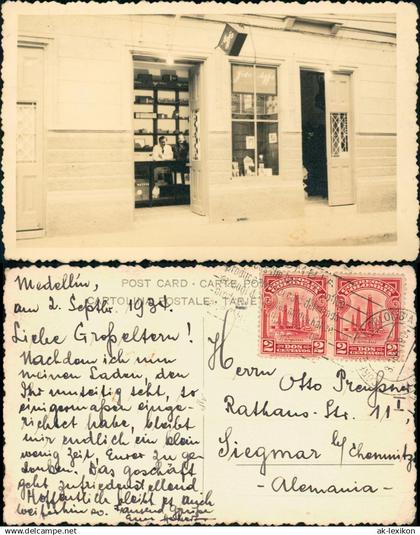 Foto Agfa
POST CARD - CARTE PO
CARTOLINA POSTALE - TARJET
Medellín,
am 2. Septbr. 1934.
Liebe Großeltern!
Nachdem ich nun
meinen Laden, den
Ihr umseitig seht, so
einigermaßen einge-
richtet habe, bleibt
mir endlich ein klein
wenig Zeit, Eurer zu ge-
denken. Das Geschäft
geht zufriedenstellend
Hoffentlich bleibt es auch
weiterhin so. Tausend Grüße
Euer
2 DOS CENTAVOS 2
2 DOS CENTAVOS 2
Herrn
Otto Preußner
Rathaus-Str. 11 I
Siegmar b/Chemnitz
-Alemania-
www.ak-lexikon.de